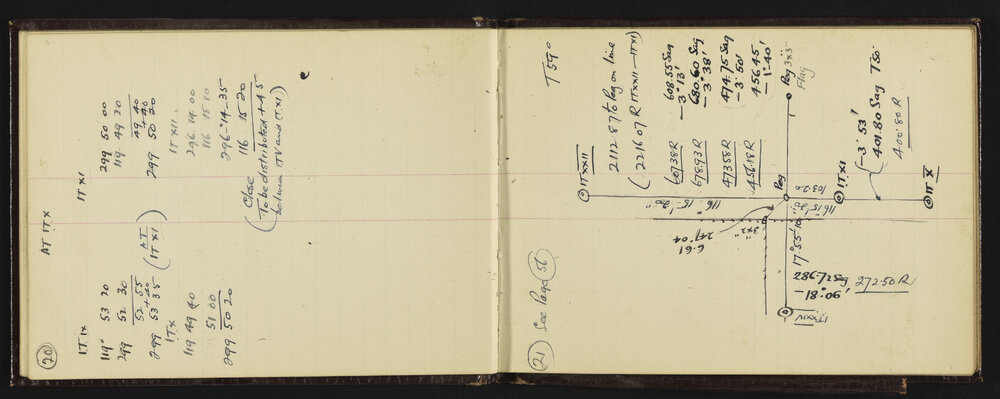 (20)
AT IT X
IT IX
119° 53 20
299 52 30
52 55
+ 40
299 53 35 (AT IT XI)
IT X
119 49 40
51 00
299 50 20
IT XI
299 50 00
119 49 20
49 40
+ 40
299 50 20
IT XII.
296 14 00
116 15 10
296-14-35
116 15 20
(Close
To be distributed + 45"
between IT V and IT XI)
(21) See Page 56
T 59°
IT XXII
2112.87 to Peg on line
(2216.07 R IT XXII — IT XI)
608.55 Sag
— 3° 13'
607.38 R
680.60 Sag
— 3° 38'
678.93 R
474.75 Sag
— 3° 50'
473.58 R
456.45
— 1° 40'
456.18 R
116° 15' 20"
6.61
241° 04
2x2"
Peg
Peg 3x3"
Flag
103.20
116° 15' 20"
IT XI
— 3° 53'
401.80 Sag T 50°
400.80 R
IT X
17° 55' 10"
286.72 Sag
— 18° 06'
272.50 R
IT XXIV